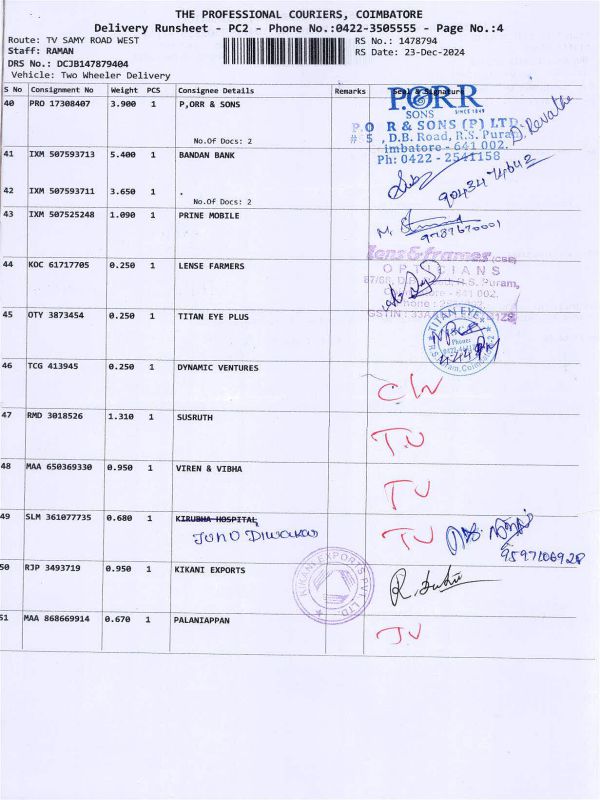 THE PROFESSIONAL COURIERS, COIMBATORE
Delivery Runsheet - PC2 - Phone No.:0422-3505555 - Page No.:4
Route: TV SAMY ROAD WEST
Staff: RAMAN
DRS No.: DCJB147879404
Vehicle: Two Wheeler Delivery
RS No.: 1478794
RS Date: 23-Dec-2024
S No Consignment No Weight PCS Consignee Details Remarks Seal & Signature
40 PRO 17308407 3.900 1 P,ORR & SONS
No.Of Docs: 2
P.ORR
SONS SINCE 1849
P.O R & SONS (P) LTD
# 5 , D.B. Road, R.S. Puram
imbatore - 641 002.
Ph: 0422 - 2541158
D. Revathe
41 IXM 507593713 5.400 1 BANDAN BANK
9043474642
42 IXM 507593711 3.650 1 .
No.Of Docs: 2
43 IXM 507525248 1.090 1 PRINE MOBILE
9787670001
44 KOC 61717705 0.250 1 LENSE FARMERS
lens & framer (CBE)
OPTICIANS
R.S. Puram,
641 002.
45 OTY 3873454 0.250 1 TITAN EYE PLUS
TITAN EYE
46 TCG 413945 0.250 1 DYNAMIC VENTURES
47 RMD 3018526 1.310 1 SUSRUTH
48 MAA 650369330 0.950 1 VIREN & VIBHA
49 SLM 361077735 0.680 1 KIRUBHA HOSPITAL
9597106928
50 RJP 3493719 0.950 1 KIKANI EXPORTS
KIKANI EXPORTS PVT. LTD.
51 MAA 868669914 0.670 1 PALANIAPPAN